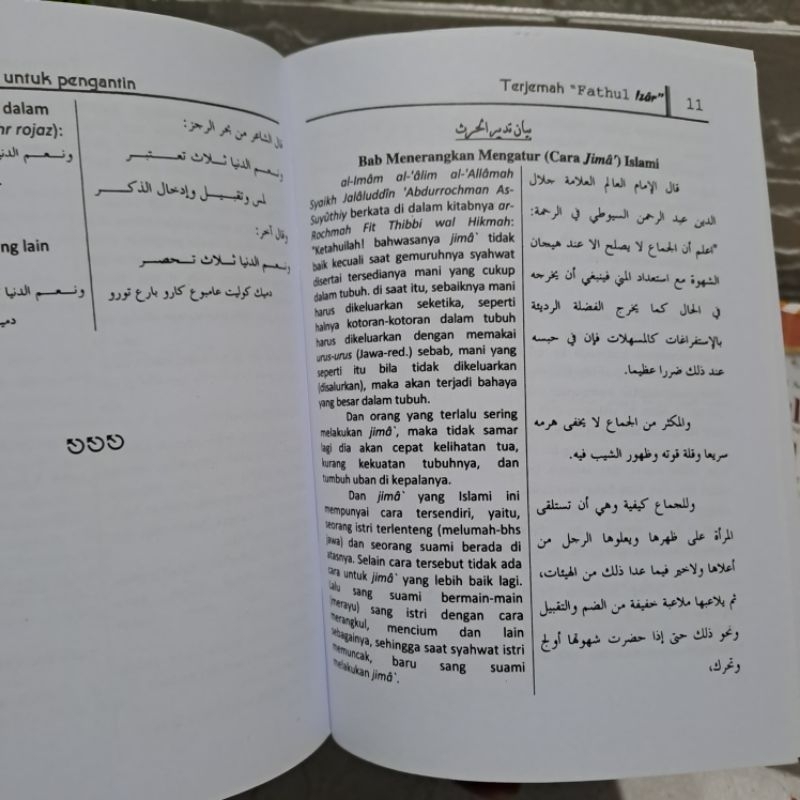 untuk pengantin
dalam
hr rojaz):
ng lain
قال الشاعر من بحر الرجز:
ونعم الدنيا ثلاث تعتبر
لمس وتقبيل وإدخال الذكر
وقال آخر:
ونعم الدنيا ثلاث تحصر
دميك كوليت عامبوع كارو بارع تورو
ونعم الدنيا
ونعم الدنيا
Terjemah "Fathul Izâr"
11
بيان تدبير الحرث
Bab Menerangkan Mengatur (Cara Jimâ') Islami
al-Imâm al-'âlim al-'Allâmah
Syaikh Jalâluddîn 'Abdurrochman As-
Suyûthiy berkata di dalam kitabnya ar-
Rochmah Fit Thibbi wal Hikmah:
"Ketahuilah! bahwasanya jimâ` tidak
baik kecuali saat gemuruhnya syahwat
disertai tersedianya mani yang cukup
dalam tubuh. di saat itu, sebaiknya mani
harus dikeluarkan seketika, seperti
halnya kotoran-kotoran dalam tubuh
harus dikeluarkan dengan memakai
urus-urus (Jawa-red.) sebab, mani yang
seperti itu bila tidak dikeluarkan
(disalurkan), maka akan terjadi bahaya
yang besar dalam tubuh.
Dan orang yang terlalu sering
melakukan jimâ`, maka tidak samar
lagi dia akan cepat kelihatan tua,
kurang kekuatan tubuhnya, dan
tumbuh uban di kepalanya.
Dan jimâ` yang Islami ini
mempunyai cara tersendiri, yaitu,
seorang istri terlenteng (melumah-bhs
jawa) dan seorang suami berada di
atasnya. Selain cara tersebut tidak ada
cara untuk jimâ` yang lebih baik lagi.
Lalu sang suami bermain-main
(merayu) sang istri dengan cara
merangkul, mencium dan lain
sebagainya, sehingga saat syahwat istri
memuncak, baru sang suami
melakukan jimâ`.
قال الإمام العالم العلامة جلال
الدين عبد الرحمن السيوطي في الرحمة:
"اعلم أن الجماع لا يصلح الا عند هيجان
الشهوة مع استعداد المني فينبغي أن يخرجه
في الحال كما يخرج الفضلة الرديئة
بالإستفراغات كالمسهلات فإن في حبسه
عند ذلك ضررا عظيما.
والمكثر من الجماع لا يخفى هرمه
سريعا وقلة قوته وظهور الشيب فيه.
وللجماع كيفية وهي أن تستلقى
المرأة على ظهرها ويعلوها الرجل من
أعلاها ولاخير فيما عدا ذلك من الهيئات،
ثم يلاعبها ملاعبة خفيفة من الضم والتقبيل
ونحو ذلك حتى إذا حضرت شهوتها أولج
وتحرك،